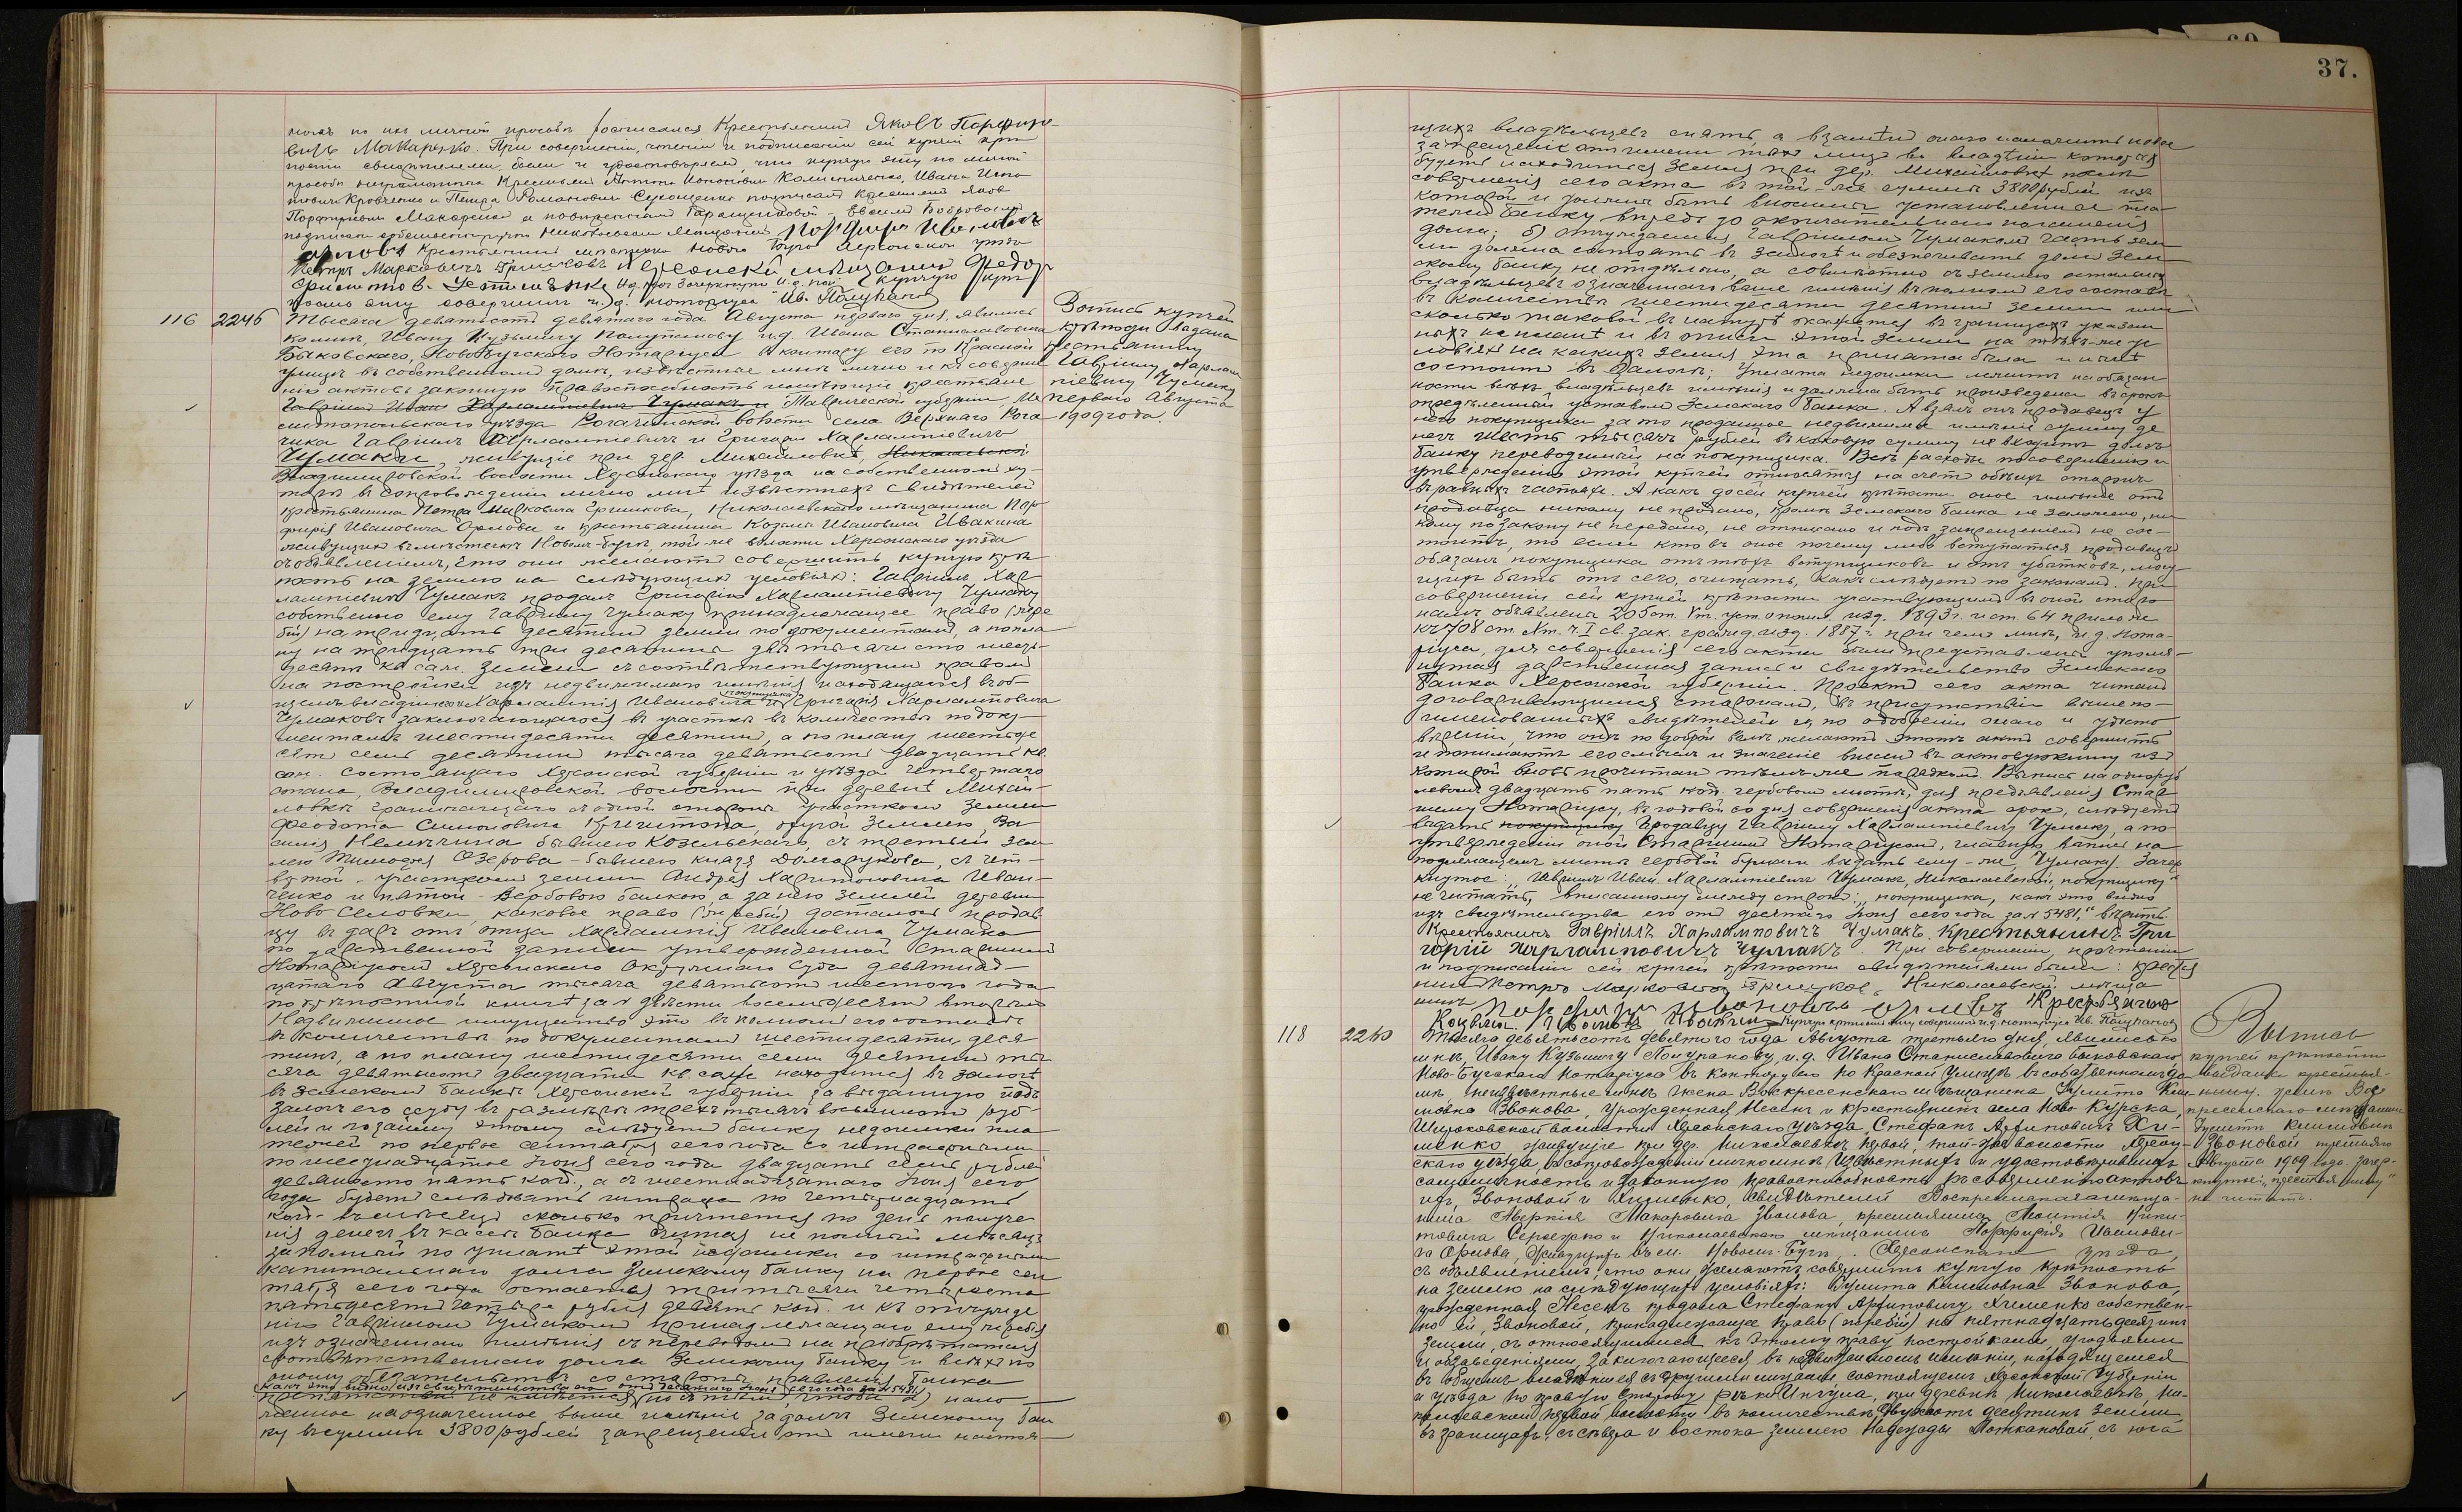 37.
ногъ по ихъ личной просьбѣ росписался Крестьянинъ Яковъ Порфирье-
вичъ Макаренко. При совершеніи, чтеніи и подписаніи сей купчей крѣ
пости свидѣтелями были и удостовѣряемъ, что купчую эту по личной
просьбѣ неграмотныхъ Крестьянъ
Порфирьевъ Макаренко а повѣренный
подписалъ собственноручно Николаевскій мѣщанинъ Порфирій Ивановичъ
Орловъ Крестьянинъ мѣстечка Новаго Буга Херсонскаго уѣзда
Петръ Марковичъ Гришковъ Херсонскій мѣщанинъ Федоръ
Купчую крѣ
пость эту совершилъ и. д. нотаріуса Ив. Полупановъ
116 2246 Тысяча девятьсотъ девятаго года Августа перваго дня, явились
ко мнѣ, Ивану Кузьмичу Полупанову и.д. Ивана Станиславовича
Быковскаго, Новобугскаго Нотаріуса въ контору его по Красной
улицѣ въ собственномъ домѣ, извѣстные мнѣ лично и къ соверше
нію актовъ законную правоспособность имѣющіе крестьяне
Гавріилъ Иванъ Харлампіевичъ Чумакъ и Таврической губерніи Ме
литопольскаго уѣзда Рогачинской волости села Верхняго Рога
чика Гавріилъ Харлампіевичъ и Григорій Харлампіевичъ
Чумаки, живущіе при дер. Михайловкѣ Николаевской
Владимировской волости Херсонскаго уѣзда на собственномъ ху-
торѣ въ сопровожденіи лично мнѣ извѣстныхъ свидѣтелей
крестьянина Петра Марковича Гришкова, Николаевскаго мѣщанина Пор
фирія Ивановича Орлова и крестьянина Козьмы Ивановича Ивакина
живущихъ въ мѣстечкѣ Новомъ-Бугѣ, той-же волости Херсонскаго уѣзда
съ объявленіемъ, что они желаютъ совершить купчую крѣ
пость на землю на слѣдующихъ условіяхъ: Гавріилъ Хар
лампіевичъ Чумакъ продалъ Григорію Харлампіевичу Чумаку
собственно ему Гавріилу Чумаку принадлежащее право (жре
бій) на тридцать десятинъ земли по документамъ, а по пла
ну на тридцать три десятины двѣ тысячи сто шесть-
десятъ кв. саж. земли съ соотвѣтствующимъ правомъ
на постройки изъ недвижимаго имѣнія находящагося въ об
щемъ владѣніи Харлампія Ивановича и покупщика Григорія Харлампіевича
Чумаковъ заключающагося въ участкѣ въ количествѣ по доку-
ментамъ шестидесяти десятинъ, а по плану шестьде
сятъ семь десятинъ тысяча девятьсотъ двадцать кв.
саж. состоящаго Херсонской губерніи и уѣзда четвертаго
стана, Владимировской волости при деревнѣ Михай-
ловкѣ граничащаго съ одной стороны участкомъ земли
Феодота Симоновича Крыштопа, другой землею Ва
силія Немичина бывшею Козельскаго, съ третьей зем
лею Тимофея Озерова - бывшею князя Долгорукова, съ чет-
вертой - участкомъ земли Андрея Харитоновича Иван-
ченко и пятой - Вербовою балкою, а за нею землей деревни
Ново Селовки, каковое право (жребій) досталось продав
цу въ даръ отъ отца Харлампія Ивановича Чумака
по дарственной записи утвержденной Старшимъ
Нотаріусомъ Херсонскаго Окружнаго Суда девятнад-
цатаго Августа тысяча девятьсотъ шестого года
по крѣпостной книгѣ за № двѣсти восемьдесятъ вторымъ
Недвижимое имущество это въ полномъ его составѣ
въ количествѣ по документамъ шестидесяти деся
тинъ, а по плану шестидесяти семи десятинъ ты
сяча девятьсотъ двадцати кв. саж. находится въ залогѣ
въ Земскомъ Банкѣ Херсонской губерніи за выданную подъ
залогъ его ссуду въ размѣрѣ трехъ тысячъ восьмисотъ руб-
лей и по займу этому слѣдуетъ банку недоимки пла
тежей по первое сентября сего года со штрафными
по шестнадцатое Іюня сего года двадцать семь рублей
девяносто пять коп., а съ шестнадцатаго Іюня сего
года будетъ слѣдовать штрафа по четырнадцать
коп. въ мѣсяцъ сколько причтется по день получе
нія денегъ въ кассѣ Банка считая не полный мѣсяцъ
за полный по уплатѣ этой недоимки со штрафными
капитальнаго долга Земскому Банку на первое сен
тября сего года остается три тысячи четыреста
пятьдесятъ четыре рубля девять коп. и къ отчужде
нію Гавріиломъ Чумакомъ принадлежащаго ему жребія
изъ означеннаго имѣнія съ переводомъ на пріобрѣтателя
соотвѣтственнаго долга Земскому Банку и всѣхъ по
оному обязательствъ со стороны правленія Банка
какъ это видно изъ свидѣтельства его отъ десятаго Іюня сего года за № 5481
препятствій не имѣется, но съ тѣмъ, чтобы а) нало
женное на означенное выше имѣніе за долгъ Земскому Бан
ку въ суммѣ 3800 рублей запрещеніе отъ имени настоя-
Выпись купчей
крѣпости выдана
крестьянину
Гавріилу Харлам
піевичу Чумаку
перваго Августа
1909 года.
щихъ владѣльцевъ снять, а взамѣнъ онаго наложить новое
запрещеніе отъ имени тѣхъ лицъ въ владѣніи которыхъ
будетъ находиться земля при дер. Михайловкѣ послѣ
совершенія сего акта въ той-же суммѣ 3800 рублей изъ
которой и должны быть вносимы установленные пла
тежи банку впредь до окончательнаго погашенія
долга; б) отчуждаемая Гавріиломъ Чумакомъ часть зем
ли должна состоять въ залогѣ и обезпечивать долгъ Зем
скому банку не отдѣльно, а совмѣстно съ землею остальныхъ
владѣльцевъ означеннаго выше имѣнія въ полномъ его составѣ
въ количествѣ шестидесяти десятинъ земли или
сколько таковой въ натурѣ окажется въ границахъ указан
ныхъ на планѣ и въ описи этой земли на тѣхъ-же ус
ловіяхъ на какихъ земля эта принята была и нынѣ
состоитъ въ залогѣ; Уплата недоимки лежитъ на обязан
ности всѣхъ владѣльцевъ имѣнія и должна быть произведена въ срокъ
опредѣленный уставомъ Земскаго Банка. А взялъ онъ продавецъ у
него покупщика за то проданное недвижимое имѣніе сумму де
негъ шесть тысячъ рублей въ каковую сумму не входитъ долгъ
банку переводимый на покупщика. Всѣ расходы по совершенію и
утвержденію этой купчей относятся на счетъ обѣихъ сторонъ
въ равныхъ частяхъ. А какъ до сей купчей крѣпости оное имѣніе отъ
продавца никому не продано, кромѣ Земскаго Банка не заложено, ни
кому по закону не передано, не отписано и подъ запрещеніемъ не сос-
тоитъ, то если кто въ оное почему либо вступаться продавецъ
обязанъ покупщика отъ тѣхъ вступщиковъ и отъ убытковъ, могу-
щихъ быть отъ сего, очищать, какъ слѣдуетъ по законамъ. При
совершеніи сей купчей крѣпости участвующимъ въ оной сторо
намъ объявлены 205 ст. Vт. уст. о пошл. изд. 1893 г. и ст. 64 прилож.
къ 708 ст. Xт. ч. I св. зак. гражд. изд. 1887 г. при чемъ мнѣ, и. д. Нота-
ріуса, для совершенія сего акта были представлены упомя-
нутая дарственная запись и свидѣтельство Земскаго
Банка Херсонской губерніи. Проектъ сего акта читанъ
договаривающимся сторонамъ, въ присутствіи вышепо-
именованныхъ свидѣтелей и, по одобреніи онаго и удосто
вѣреніи, что онѣ по доброй волѣ желаютъ этотъ актъ совершить
и понимаютъ его смыслъ и значеніе внесенъ въ актовую книгу изъ
которой вновь прочитанъ тѣмъ-же порядкомъ. Выпись на одноруб
левомъ двадцать пять коп. гербовомъ листѣ, для предъявленія Стар
шему Нотаріусу, въ годовой со дня совершенія акта срокъ, слѣдуетъ
выдать покупщику продавцу Гавріилу Харлампіевичу Чумаку, а по
утвержденіи оной Старшимъ Нотаріусомъ, главную выпись на
подлежащемъ листѣ гербовой бумаги выдать ему-же, Чумаку. Зачер
кнутое: „Гавріилъ Иван. Харлампіевичъ Чумакъ, Николаевской, покупщику"
не читать, вписанному между строкъ: „покупщика, какъ это видно
изъ свидѣтельства его отъ десятаго Іюня сего года за № 5481," вѣрить.
Крестьянинъ Гавріилъ Харламповичъ Чумакъ. Крестьянинъ Гри
горій Харлампіевичъ Чумакъ. При совершеніи, прочтеніи
и подписаніи сей купчей крѣпости свидѣтелями были: кресть
янинъ Петръ Марковичъ Гришков. Николаевскій мѣща
нинъ Порфирій Ивановичъ Орловъ Крестьянинъ
Козьма Ивановъ Ивакинъ Купчую крѣпость эту совершилъ и.д. нотаріуса Ив. Полупановъ
118 2260 Тысяча девятьсотъ девятого года Августа третьяго дня, явились ко
мнѣ, Ивану Кузьмичу Полупанову, и.д. Ивана Станиславовича Быковскаго
Ново-Бугскаго Нотаріуса въ контору его по Красной улицѣ въ собственномъ до-
мѣ, неизвѣстные мнѣ жена Воскресенскаго мѣщанина
Звонова, урожденная Несенъ и крестьянинъ села Ново Курска,
Широковской волости Херсонскаго уѣзда, Стефанъ Архиповичъ Хи-
менко, живущіе при дер. Николаевкѣ первой, той-же волости Херсон-
скаго уѣзда, въ сопровожденіи лично мнѣ извѣстныхъ и удостовѣрившихъ
самоличность и законную правоспособность къ совершенію актовъ
ихъ, Звоновой и Хименко, свидѣтелей Воскресенскаго мѣща-
нина Аверкія Макаровича Звонова, крестьянина Леонтія Ники-
товича Сергіенко и Николаевскаго мѣщанина Порфирія Иванови-
ча Орлова, живущихъ въ м. Новомъ-Бугѣ, Херсонскаго уѣзда,
съ объявленіемъ, что они желаютъ совершить купчую крѣпость
на землю на слѣдующихъ условіяхъ: Звонова,
урожденная Несенъ продала Стефану Архиповичу Хименко собствен-
но ей, Звоновой, принадлежащее право (жеребій) на пятнадцать десятинъ
земли, съ относящимися къ этому праву постройками, угодьями
и обзаведеніями, заключающееся въ недвижимомъ имѣніи, находящемся
въ общемъ владѣніи съ другими лицами, состоящемъ Херсонской губерніи
и уѣзда по правую сторону рѣки Ингула, при деревнѣ Николаевкѣ, Ни-
колаевской первой волости въ количествѣ двухсотъ десятинъ земли,
въ границахъ: съ сѣвера и востока землею Надежды съ юга
Выпись
купчей крѣпости
выдана крестья-
нину женѣ Вос
кресенскаго мѣщанина
Звоновой третьяго
Августа 1909 года. Зачер-
кнутое: „крестьянину"
не читать.